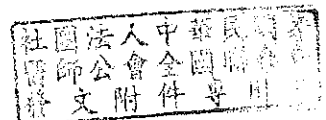 社團法人中華民國
醫師公會全國聯合
發文附件專用